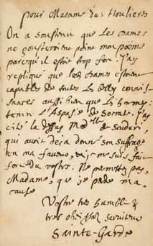 pour Madame des Houlieres
On a soustenu que les Dames
ne gousteroient point mon poeme
parcequ'il estoit trop J'ay
replique que les Dames estoient
capables de toutes les belles connois
sances aussi bien que les hommes
tesmoin l'Aspasie de J'ay
cité la Mad.lle de Scuderi
qui avoit desja donné son suffrage
en ma faveur,
du vostre. Ne permettez pas
Madame, que je perde ma
cause
Vostre tres humble &
tres obeissant serviteur
Sainte-Garde